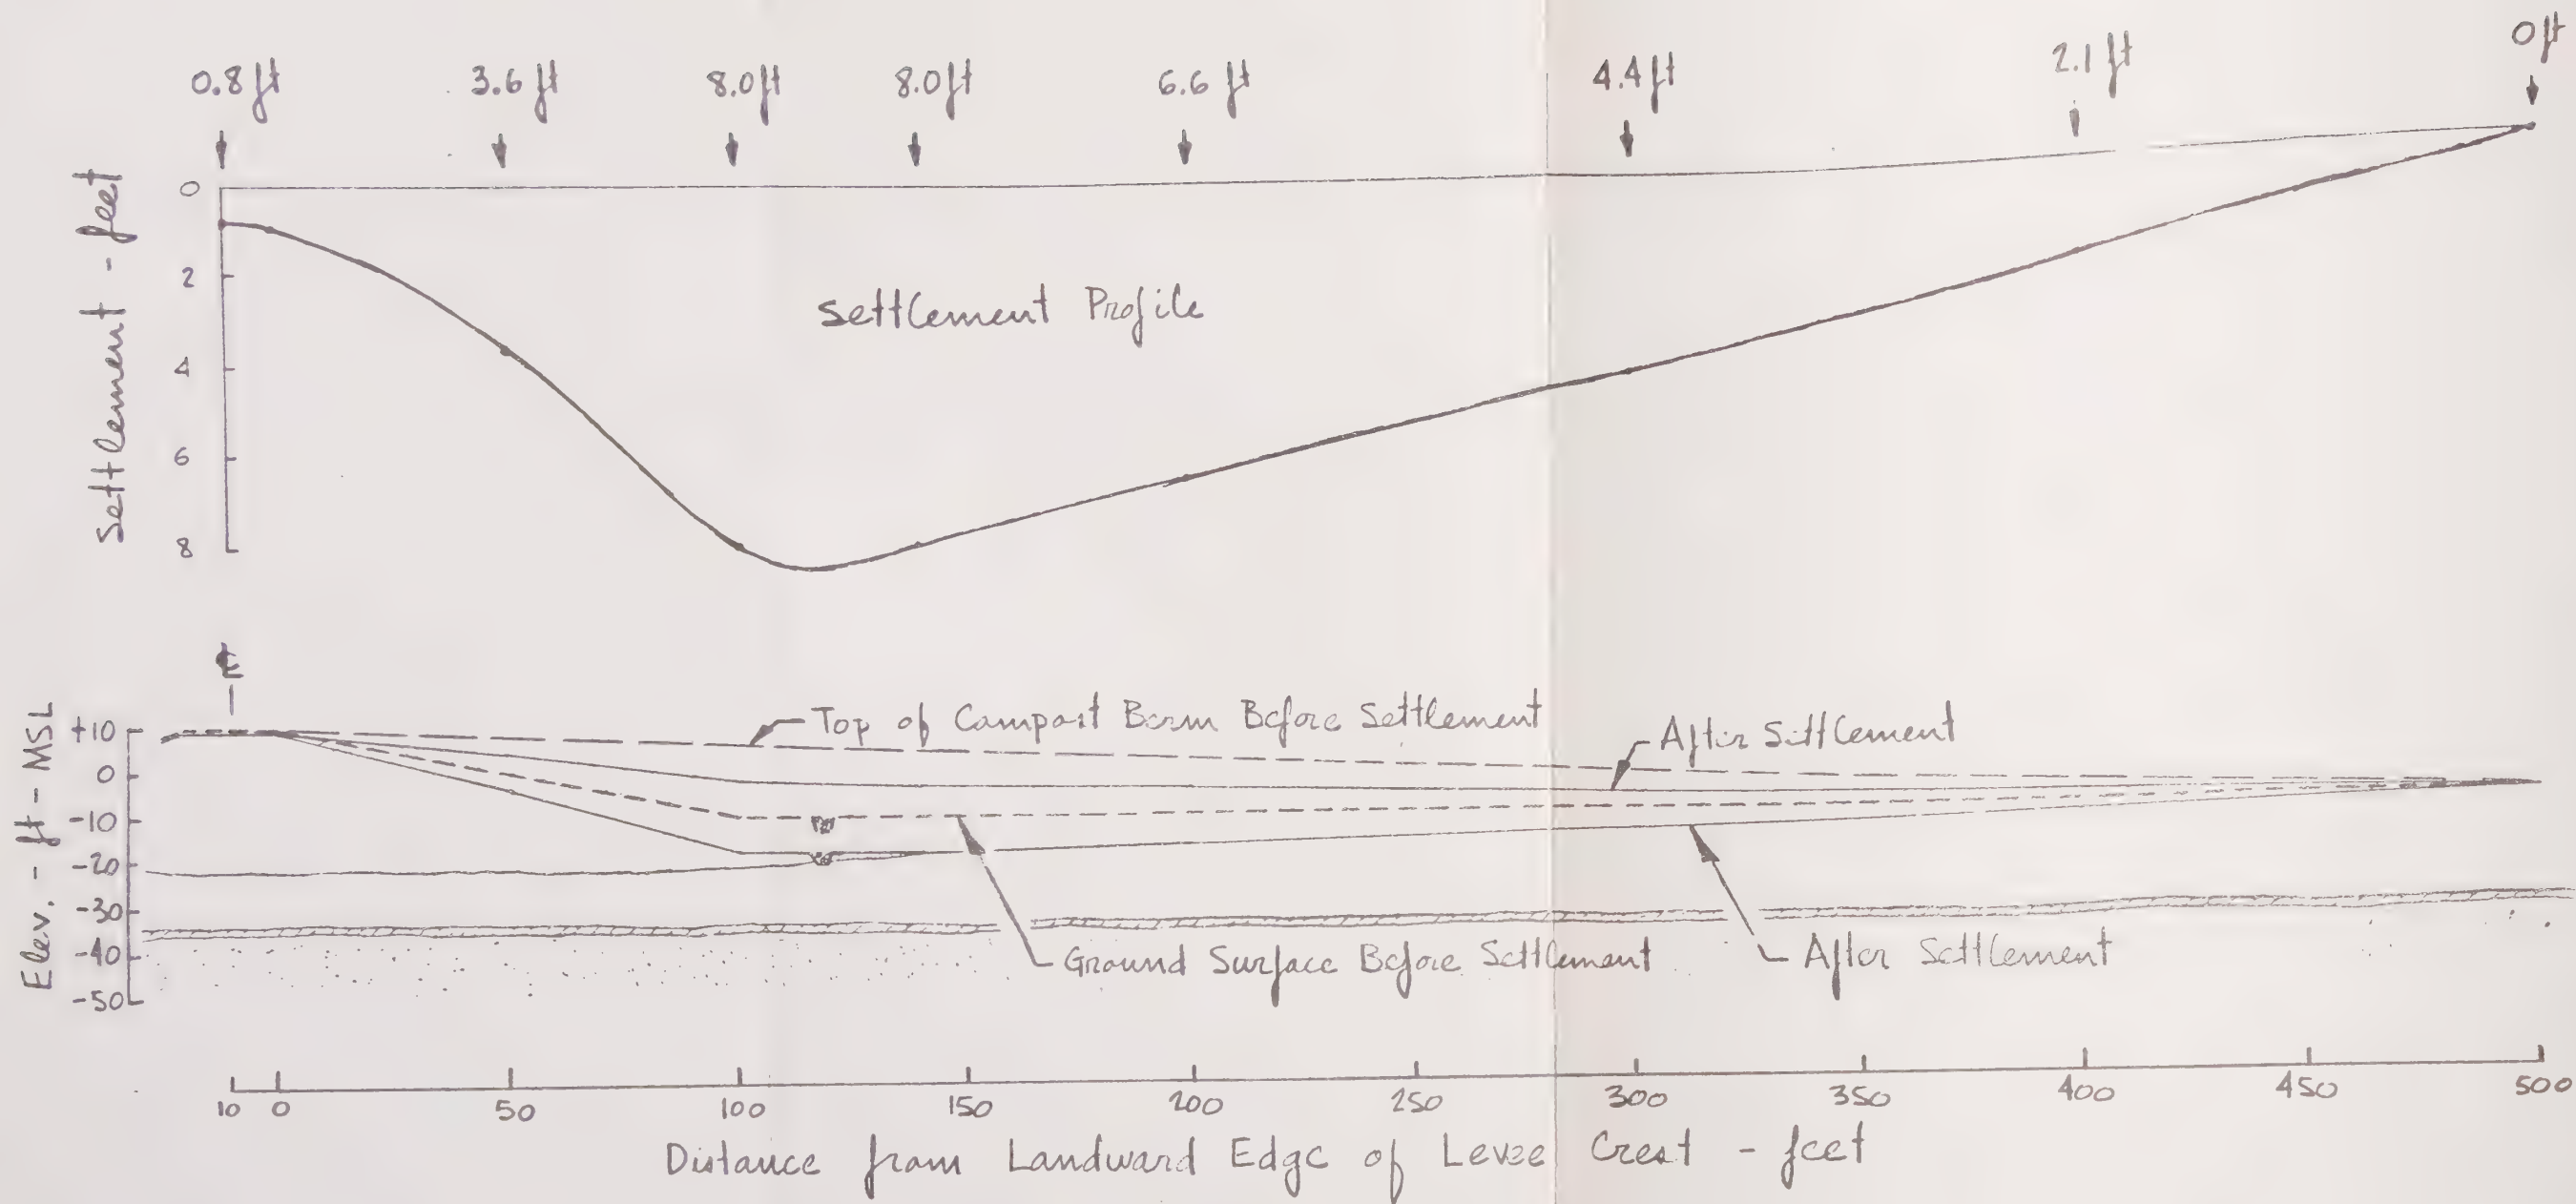 0.8 ft 3.6 ft 8.0 ft 8.0 ft 6.6 ft 4.4 ft 2.1 ft 0 ft
Settlement - feet
0
2
4
6
8
Settlement Profile
℄
Elev. - ft - MSL
+10
0
-10
-20
-30
-40
-50
Top of Compost Berm Before Settlement
After Settlement
Ground Surface Before Settlement
After Settlement
10 0 50 100 150 200 250 300 350 400 450 500
Distance from Landward Edge of Levee Crest - feet